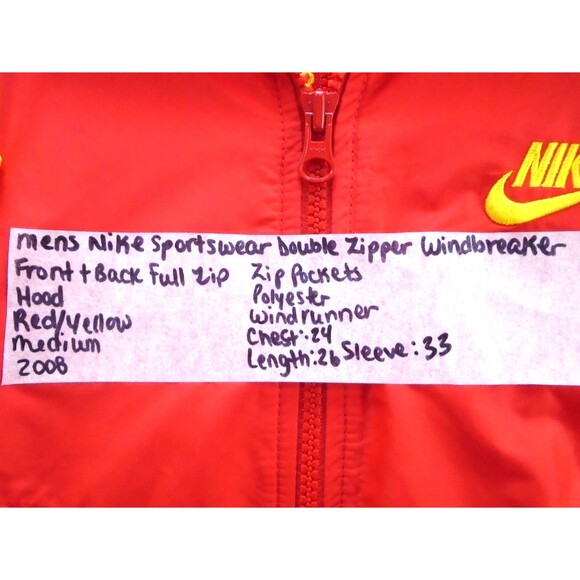 NIK
mens Nike Sportswear Double Zipper Windbreaker
Front + Back Full Zip
Hood
Red/Yellow
medium
2008
Zip Pockets
Polyester
Windrunner
Chest: 24
Length: 26 Sleeve: 33